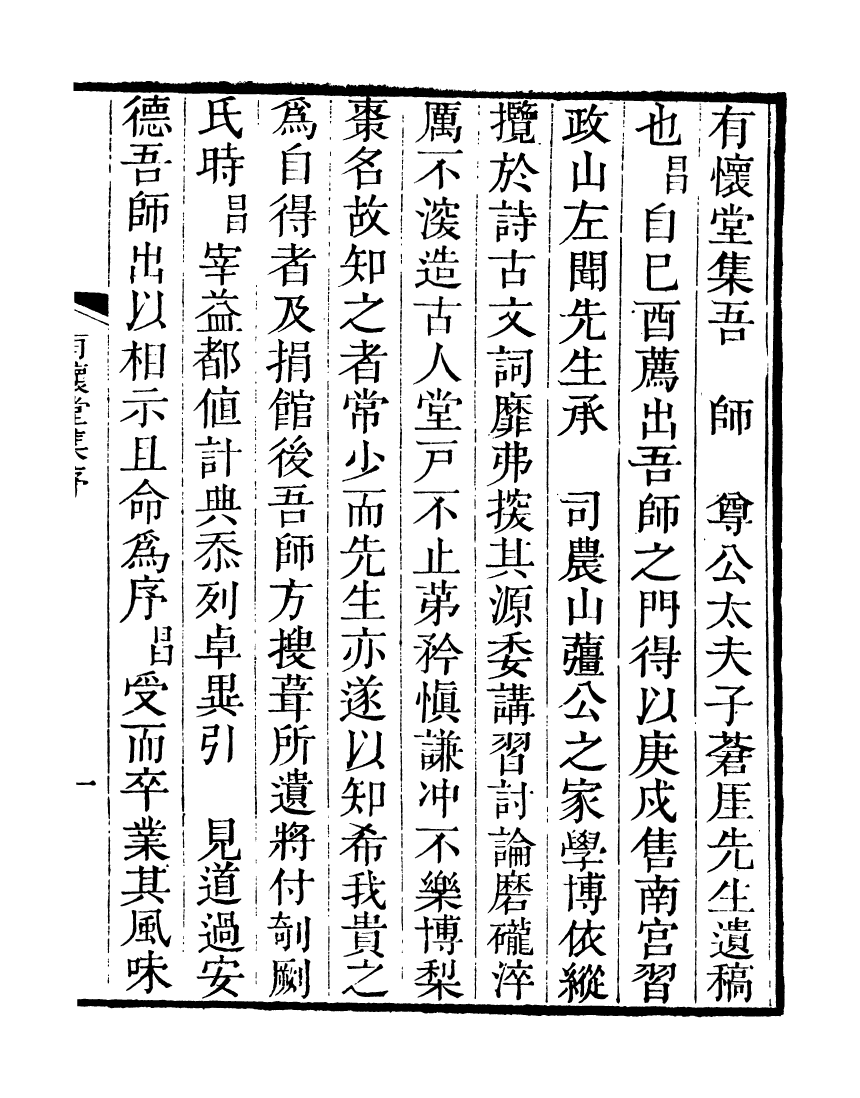 有懷堂集吾　師　尊公太夫子蒼厓先生遺稿
也昌自巳酉薦出吾師之門得以庚戍售南宫習
政山左聞先生承　司農山薑公之家學博依縱
攬於詩古文詞靡弗掞其源委講習討論磨礲淬
厲不湥造古人堂戸不止苐矜慎謙冲不樂博梨
棗名故知之者常少而先生亦遂以知希我貴之
爲自得者及捐館後吾師方搜葺所遺將付剞劂
氏時昌宰益都値計典忝列卓異引　見道過安
德吾師出以相示且命爲序昌受而卒業其風味
有懷堂集序
一